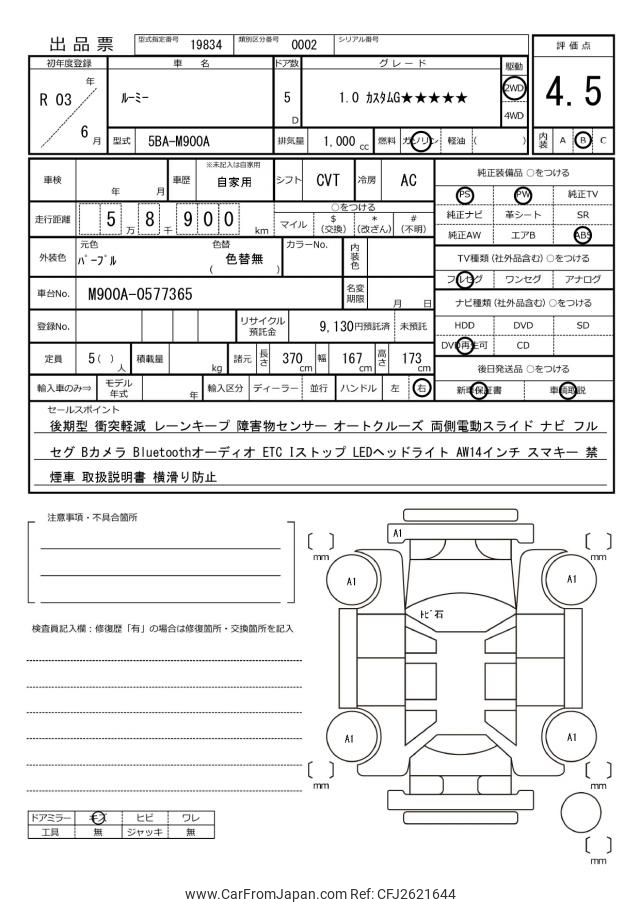 出品票 型式指定番号 19834 類別区分番号 0002 シリアル番号 評価点
初年度登録 車名 ドア数 グレード 駆動
R 03 年 ルーミー 5 D 1.0 カスタムG★★★★★ 2WD 4.5
6 月 4WD
型式 5BA-M900A 排気量 1,000 cc 燃料 ガソリン 軽油 ( ) 内装 A B C
車検 年 月 車歴 ※未記入は自家用 自家用 シフト CVT 冷房 AC 純正装備品 ○をつける
PS PW 純正TV
走行距離 5 万 8 千 9 0 0 km ○をつける 純正ナビ 革シート SR
マイル $ (交換) * (改ざん) # (不明) 純正AW エアB ABS
外装色 元色 パープル 色替 色替無 ( ) カラーNo. 内装色 TV種類 (社外品含む) ○をつける
フルセグ ワンセグ アナログ
車台No. M900A-0577365 名変期限 月 日 ナビ種類 (社外品含む) ○をつける
登録No. リサイクル預託金 9,130円預託済 未預託 HDD DVD SD
DVD再生可 CD
定員 5( ) 人 積載量 kg 諸元 長さ 370 cm 幅 167 cm 高さ 173 cm 後日発送品 ○をつける
輸入車のみ⇒ モデル年式 年 輸入区分 ディーラー 並行 ハンドル 左 右 新車保証書 車輌取説
セールスポイント
後期型 衝突軽減 レーンキープ 障害物センサー オートクルーズ 両側電動スライド ナビ フル
セグ Bカメラ Bluetoothオーディオ ETC Iストップ LEDヘッドライト AW14インチ スマキー 禁
煙車 取扱説明書 横滑り防止
注意事項・不具合箇所
A1
[ ] mm [ ] mm
A1 A1
トビ石
検査員記入欄：修復歴「有」の場合は修復箇所・交換箇所を記入
A1 A1
[ ] mm [ ] mm
ドアミラー キズ ヒビ ワレ
工具 無 ジャッキ 無
[ ] mm
www.CarFromJapan.com Ref: CFJ2621644